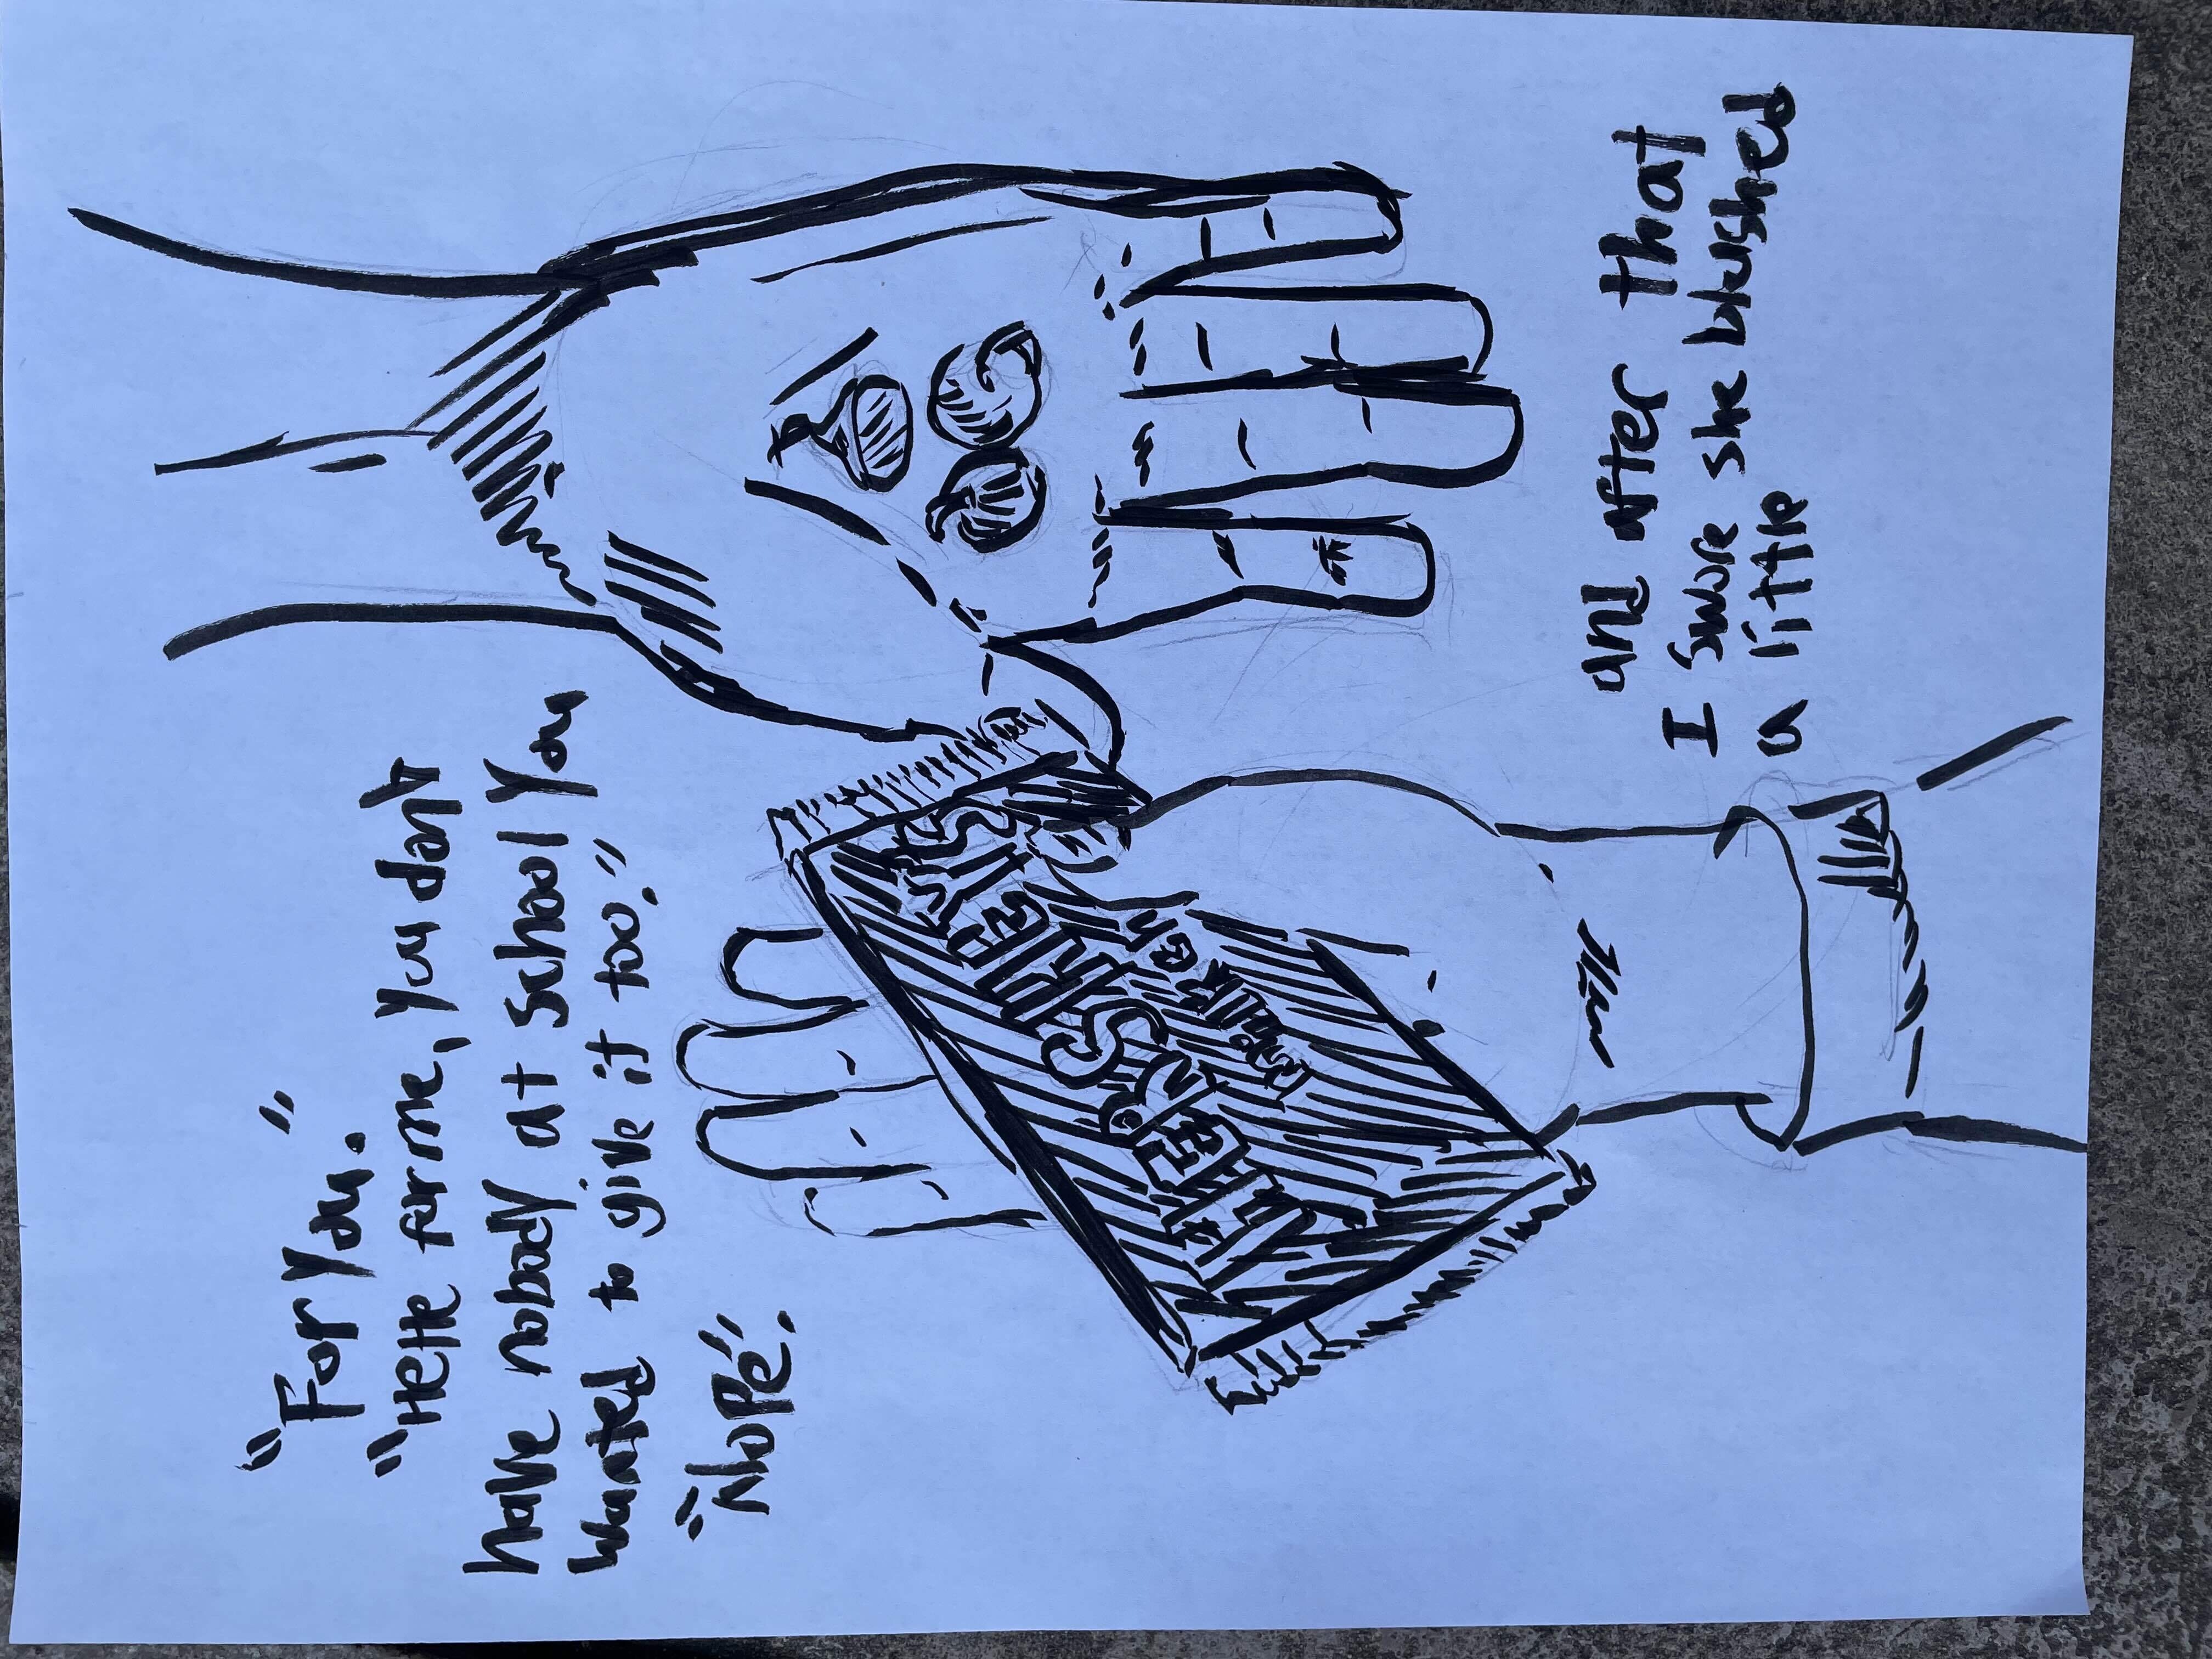 "For You."
"Hette for me, you don't
have nobody at school you
wanted to give it too."
"Nope".
HERSHEY'S
KISSES
MILK
and after that
I swore she blushed
a little